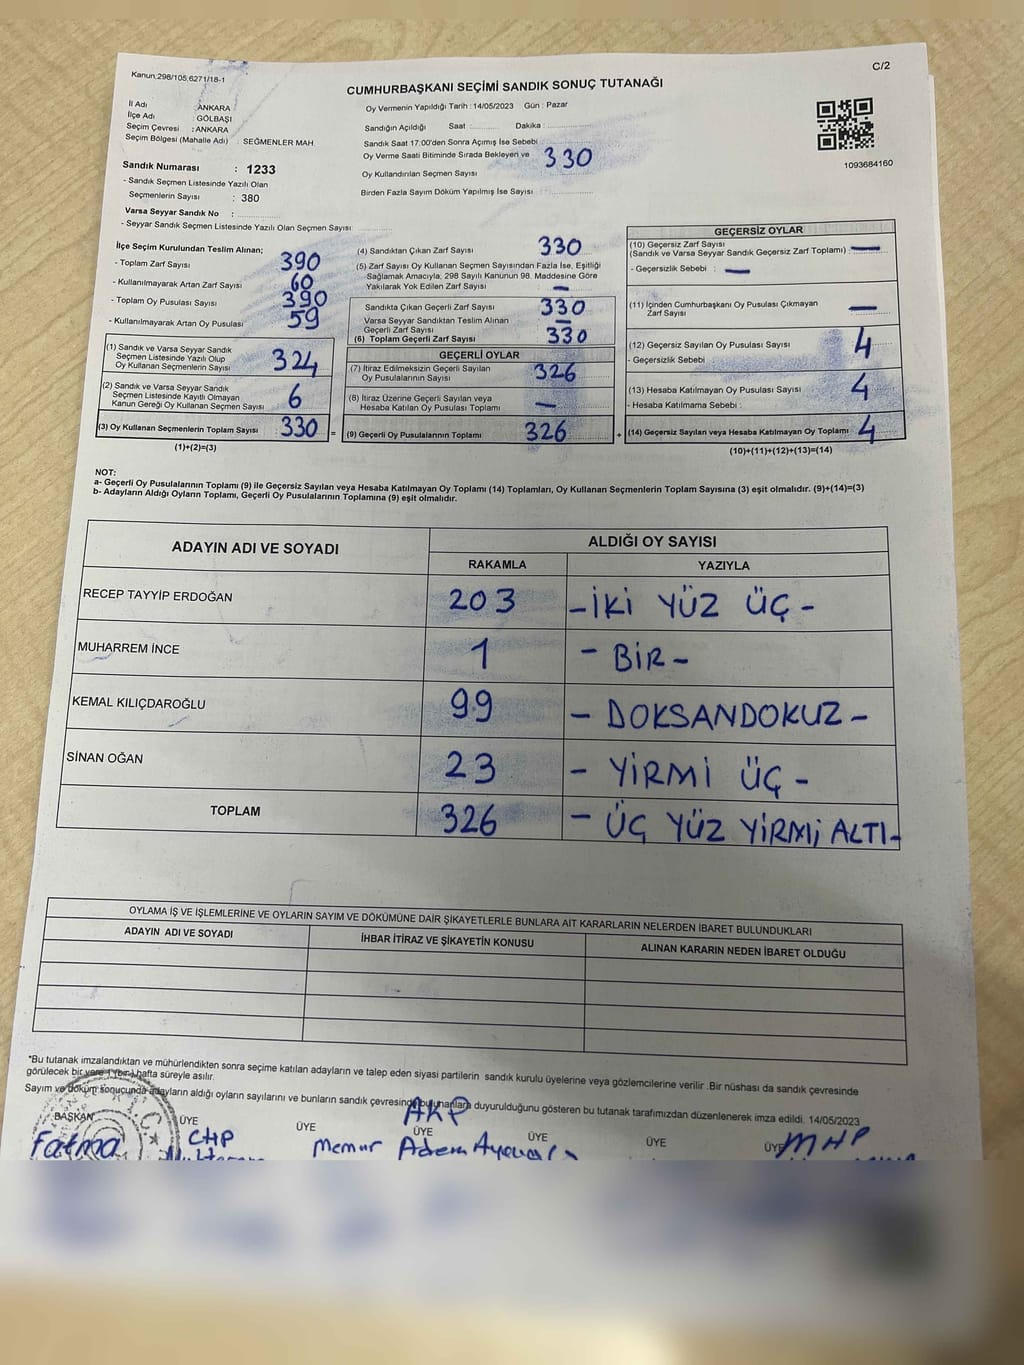 Kanun:298/105,6271/18-1
C/2
CUMHURBAŞKANI SEÇİMİ SANDIK SONUÇ TUTANAĞI
Oy Vermenin Yapıldığı Tarih : 14/05/2023 Gün : Pazar
İl Adı : ANKARA
İlçe Adı : GÖLBAŞI
Seçim Çevresi : ANKARA
Seçim Bölgesi (Mahalle Adı) : SEĞMENLER MAH.
Sandığın Açıldığı Saat : Dakika :
Sandık Saat 17:00'den Sonra Açımış İse Sebebi
Oy Verme Saati Bitiminde Sırada Bekleyen ve 330
Oy Kullandırılan Seçmen Sayısı
Birden Fazla Sayım Döküm Yapılmış İse Sayısı :
1093684160
Sandık Numarası : 1233
- Sandık Seçmen Listesinde Yazılı Olan
Seçmenlerin Sayısı : 380
Varsa Seyyar Sandık No :
- Seyyar Sandık Seçmen Listesinde Yazılı Olan Seçmen Sayısı:
İlçe Seçim Kurulundan Teslim Alınan;
- Toplam Zarf Sayısı 390
- Kullanılmayarak Artan Zarf Sayısı 60
- Toplam Oy Pusulası Sayısı 390
- Kullanılmayarak Artan Oy Pusulası 59
(1) Sandık ve Varsa Seyyar Sandık
Seçmen Listesinde Yazılı Olup
Oy Kullanan Seçmenlerin Sayısı 324
(2) Sandık ve Varsa Seyyar Sandık
Seçmen Listesinde Kayıtlı Olmayan
Kanun Gereği Oy Kullanan Seçmen Sayısı 6
(3) Oy Kullanan Seçmenlerin Toplam Sayısı 330 =
(1)+(2)=(3)
(4) Sandıktan Çıkan Zarf Sayısı 330
(5) Zarf Sayısı Oy Kullanan Seçmen Sayısından Fazla İse, Eşitliği
Sağlamak Amacıyla, 298 Sayılı Kanunun 98. Maddesine Göre
Yakılarak Yok Edilen Zarf Sayısı : —
Sandıkta Çıkan Geçerli Zarf Sayısı 330
Varsa Seyyar Sandıktan Teslim Alınan
Geçerli Zarf Sayısı —
(6) Toplam Geçerli Zarf Sayısı 330
GEÇERLİ OYLAR
(7) İtiraz Edilmeksizin Geçerli Sayılan
Oy Pusulalarının Sayısı 326
(8) İtiraz Üzerine Geçerli Sayılan veya
Hesaba Katılan Oy Pusulası Toplamı —
(9) Geçerli Oy Pusulalarının Toplamı 326 +
GEÇERSİZ OYLAR
(10) Geçersiz Zarf Sayısı
(Sandık ve Varsa Seyyar Sandık Geçersiz Zarf Toplamı) —
- Geçersizlik Sebebi : —
(11) İçinden Cumhurbaşkanı Oy Pusulası Çıkmayan
Zarf Sayısı —
(12) Geçersiz Sayılan Oy Pusulası Sayısı 4
- Geçersizlik Sebebi
(13) Hesaba Katılmayan Oy Pusulası Sayısı 4
- Hesaba Katılmama Sebebi :
(14) Geçersiz Sayılan veya Hesaba Katılmayan Oy Toplamı 4
(10)+(11)+(12)+(13)=(14)
NOT:
a- Geçerli Oy Pusulalarının Toplamı (9) ile Geçersiz Sayılan veya Hesaba Katılmayan Oy Toplamı (14) Toplamları, Oy Kullanan Seçmenlerin Toplam Sayısına (3) eşit olmalıdır. (9)+(14)=(3)
b- Adayların Aldığı Oyların Toplamı, Geçerli Oy Pusulalarının Toplamına (9) eşit olmalıdır.
ADAYIN ADI VE SOYADI
ALDIĞI OY SAYISI
RAKAMLA YAZIYLA
RECEP TAYYİP ERDOĞAN 203 -İKİ YÜZ ÜÇ-
MUHARREM İNCE 1 - BİR -
KEMAL KILIÇDAROĞLU 99 - DOKSANDOKUZ -
SİNAN OĞAN 23 - YİRMİ ÜÇ -
TOPLAM 326 - ÜÇ YÜZ YİRMİ ALTI -
OYLAMA İŞ VE İŞLEMLERİNE VE OYLARIN SAYIM VE DÖKÜMÜNE DAİR ŞİKAYETLERLE BUNLARA AİT KARARLARIN NELERDEN İBARET BULUNDUKLARI
ADAYIN ADI VE SOYADI İHBAR İTİRAZ VE ŞİKAYETİN KONUSU ALINAN KARARIN NEDEN İBARET OLDUĞU
*Bu tutanak imzalandıktan ve mühürlendikten sonra seçime katılan adayların ve talep eden siyasi partilerin sandık kurulu üyelerine veya gözlemcilerine verilir .Bir nüshası da sandık çevresinde
görülecek bir yere 1 (bir) hafta süreyle asılır.
Sayım ve döküm sonucunda adayların aldığı oyların sayılarını ve bunların sandık çevresinde bulunanlara duyurulduğunu gösteren bu tutanak tarafımızdan düzenlenerek imza edildi. 14/05/2023
BAŞKAN ÜYE ÜYE ÜYE ÜYE ÜYE ÜYE
AKP
CHP
MHP
Fatma
Memur Adem